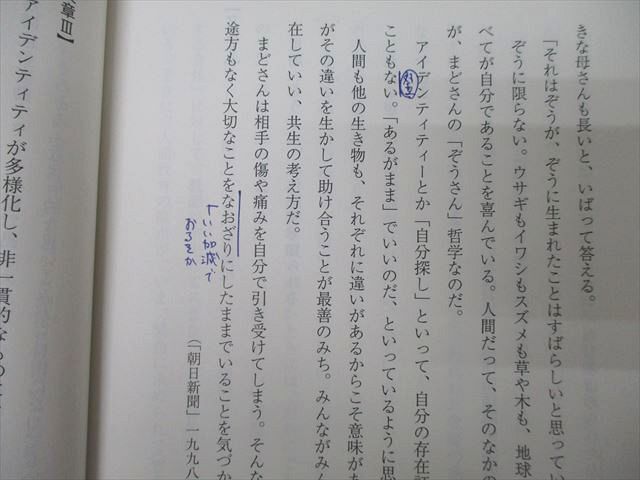 きな母さんも長いと、いばって答える。
「それはぞうが、ぞうに生まれたことはすばらしいと思ってい
ぞうに限らない。ウサギもイワシもスズメも草や木も、地球
べてが自分であることを喜んでいる。人間だって、そのなかの
が、まどさんの「ぞうさん」哲学なのだ。
アイデンティティーとか「自分探し」といって、自分の存在証
こともない。「あるがまま」でいいのだ、といっているように思
人間も他の生き物も、それぞれに違いがあるからこそ意味があ
がその違いを生かして助け合うことが最善のみち。みんながみん
在していい、共生の考え方だ。
まどさんは相手の傷や痛みを自分で引き受けてしまう。そんな
途方もなく大切なことをなおざりにしたままでいることを気づか
いい加減で
おろそか
（「朝日新聞」一九九八
章Ⅲ】
アイデンティティが多様化し、非一貫的なものに